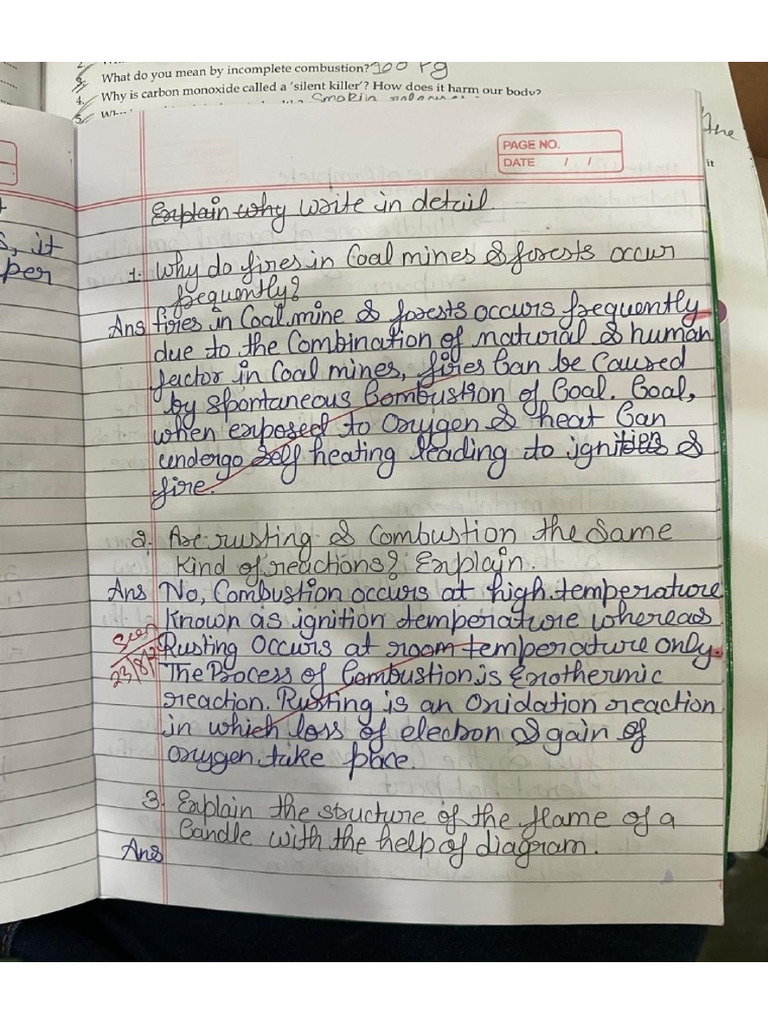 What do you mean by incomplete combustion? 100 Pg
4. Why is carbon monoxide called a 'silent killer'? How does it harm our body?
5.
The
it
s, it
per
PAGE NO.
DATE / /
Explain why Write in detail.
1. Why do fires in Coal mines & forests occur
frequently?
Ans fires in Coal mine & forests occurs frequently
due to the Combination of natural & human
factor in Coal mines, fires Can be Caused
by spontaneous Combustion of Coal. Coal,
when exposed to Oxygen & heat Can
undergo self heating leading to ignities &
fire.
2. Are rusting & Combustion the Same
Kind of reactions? Explain.
Ans No, Combustion occurs at high temperature
Known as ignition temperature whereas
Rusting Occurs at room temperature only.
The Process of Combustion is Exothermic
reaction. Rusting is an Oxidation reaction
in which loss of electron & gain of
oxygen take place.
Seen
23/8/2
3. Explain the structure of the flame of a
Candle with the help of diagram.
Ans